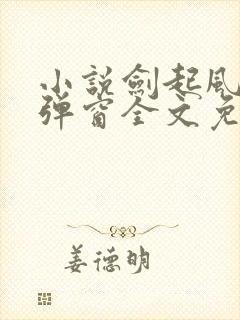 小説劍起風
弹窗全文免
姜德明